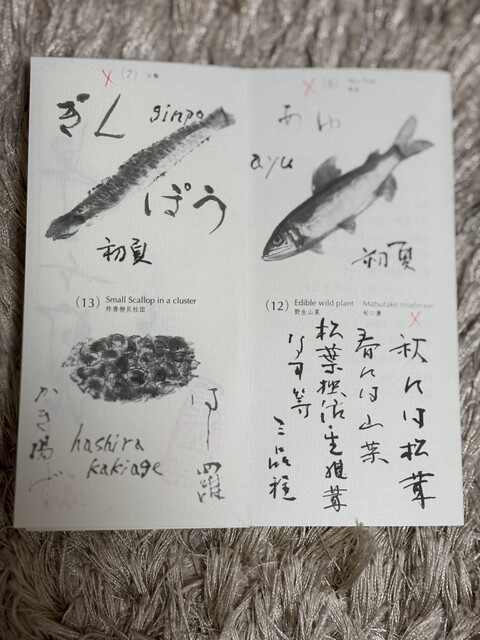 (7)
ぎん
ginpo
ぽう
初夏
(6)
あゆ
ayu
初夏
(13) Small Scallop in a cluster
炸青柳贝柱团
はしら
かき揚げ
hashira
kakiage
(12) Edible wild plant Matsutake mushroom
野生山菜 松口蘑
秋には松茸
春には山菜
松葉独活・生椎茸
なす等
三品種